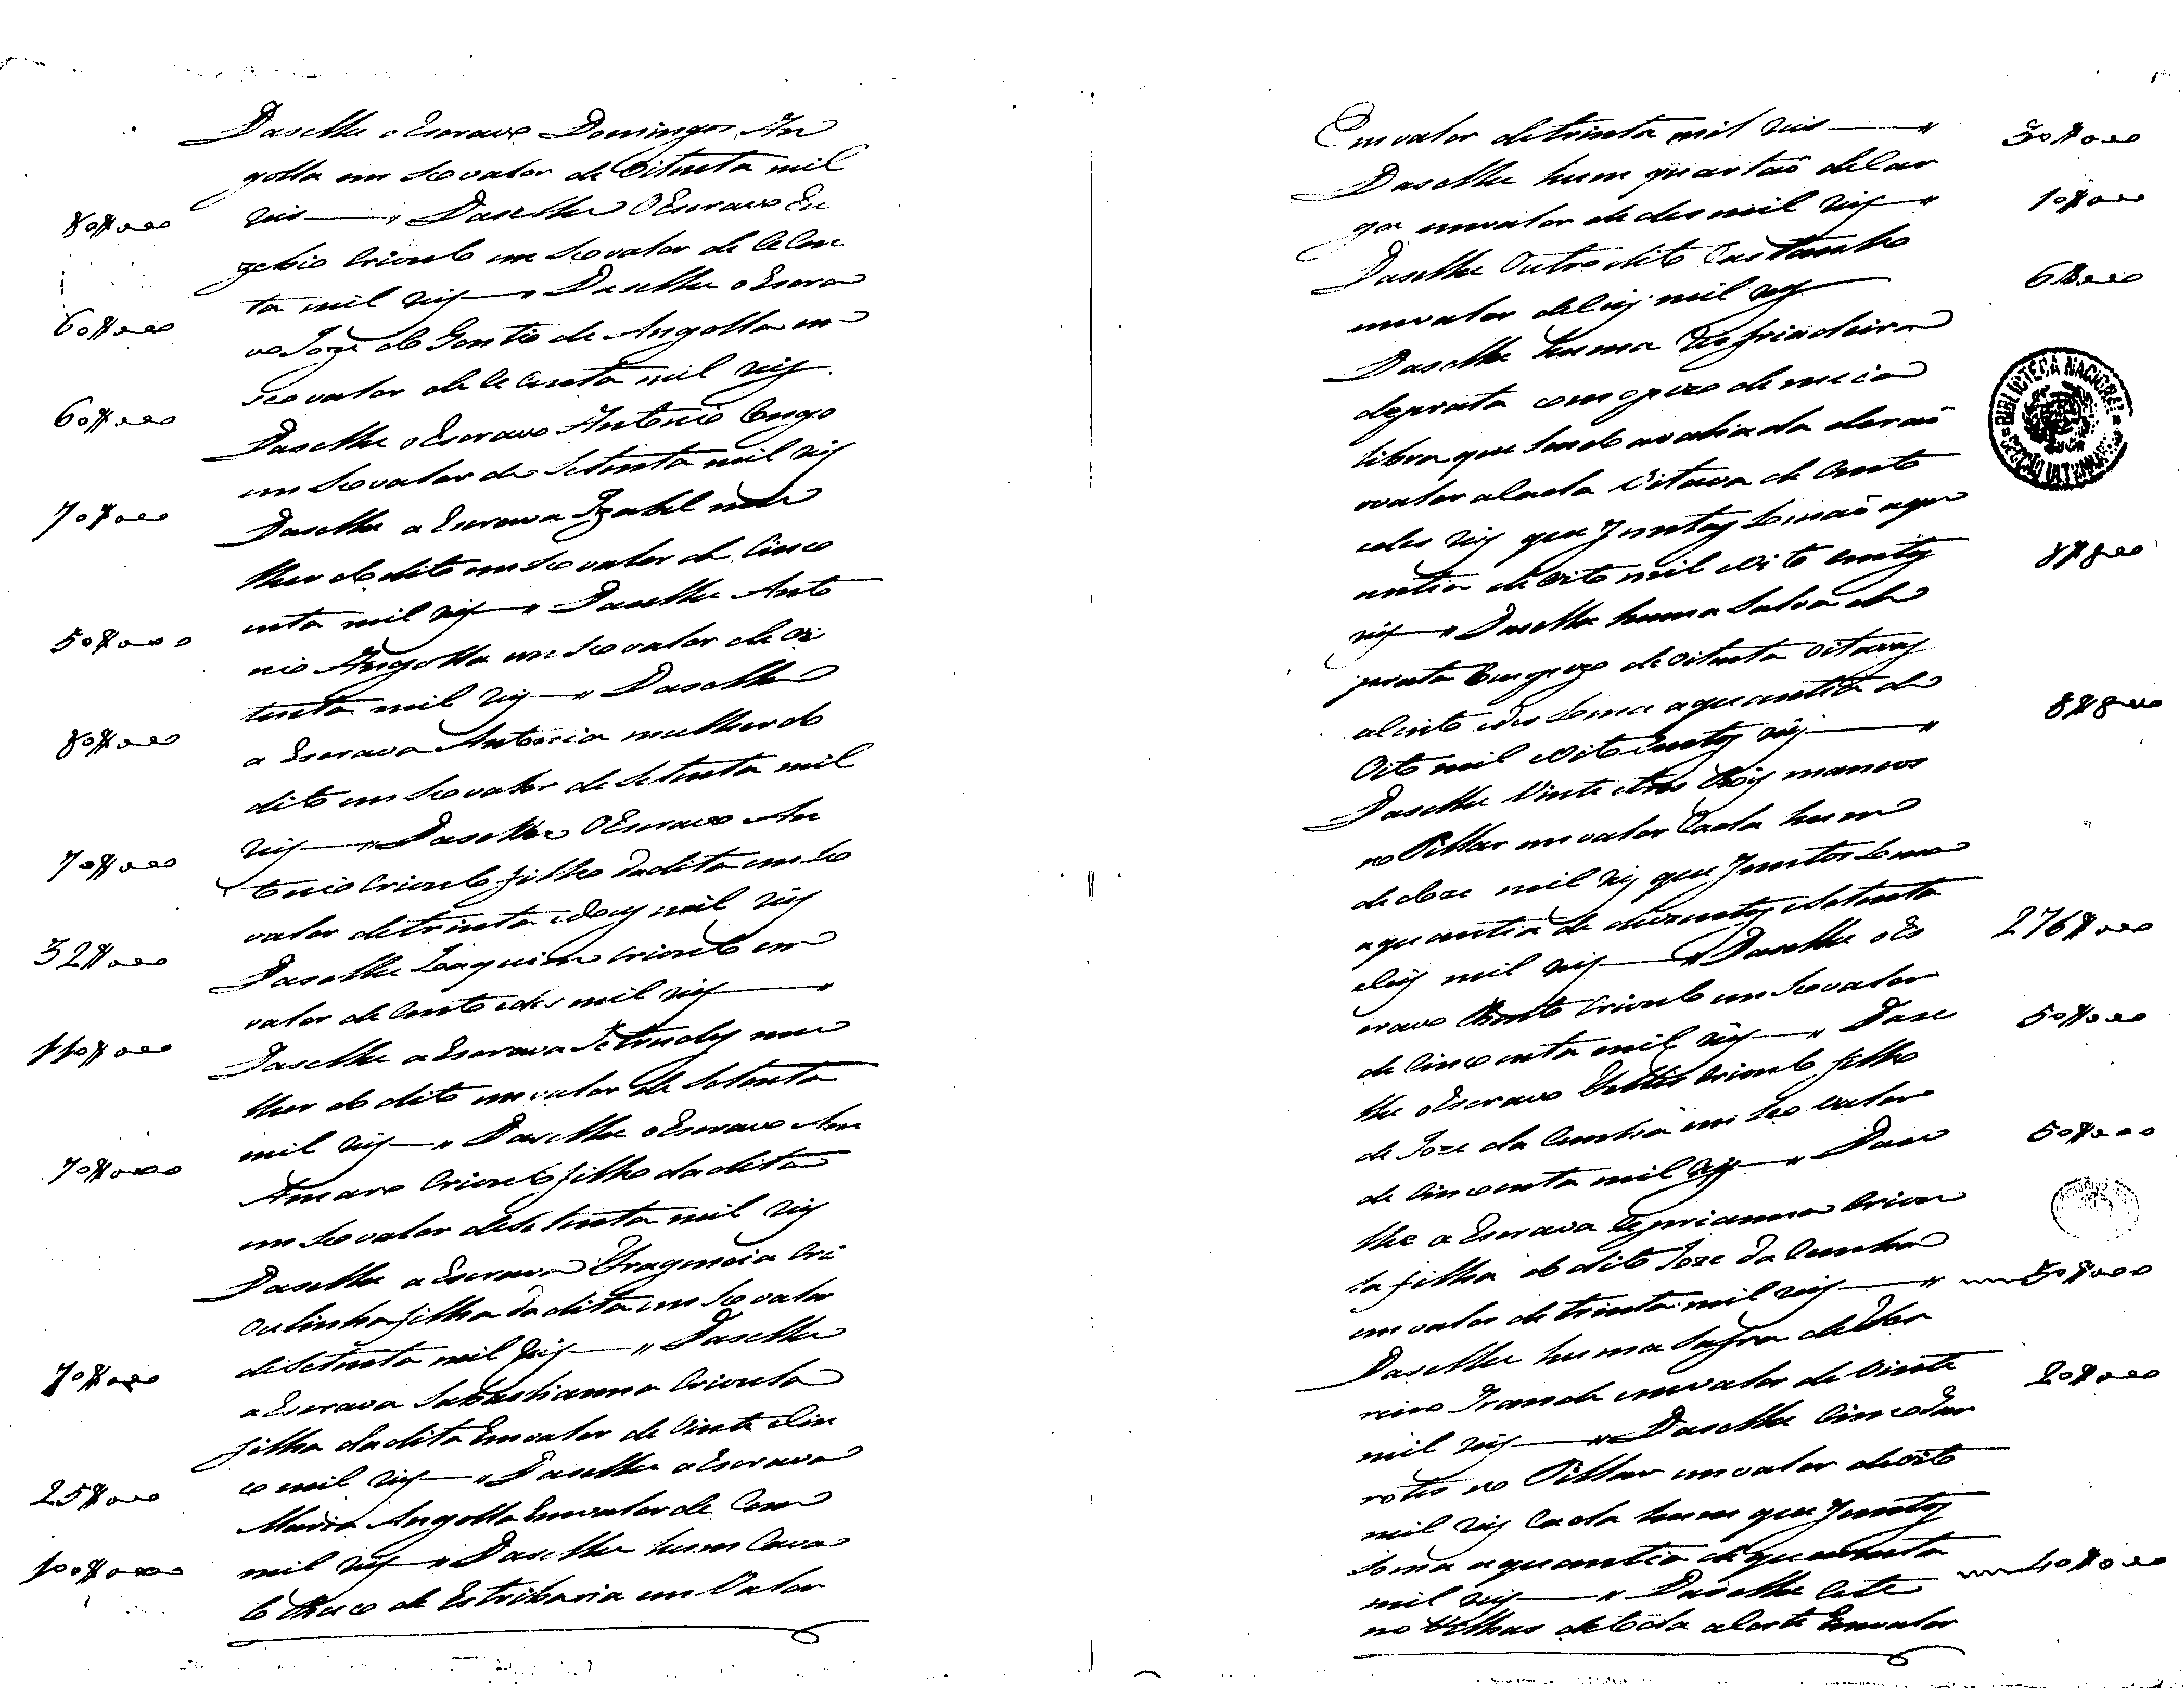 Daselhe o Escravo Domingos An
golla em Seo valor de Oitenta mil
reis — Daselhe O Escravo Eu
80$000
zebio Crioulo em Seo valor de Cecen
ta mil reis — Daselhe o Escra
60$000
vo Joze do Gentio de Angolla em
Seo valor de Cecenta mil reis
60$000
Daselhe o Escravo Antonio Congo
em Seo valor de Setenta mil reis
70$000
Daselhe a Escrava Izabel mu
lher do dito em Seo valor de Cinco
enta mil reis — Daselhe Anto
50$000
nio Angolla em Seo valor de Oi
tenta mil reis — Daselhe
80$000
a Escrava Antonia mulher do
dito em Seo valor de Setenta mil
reis — Daselhe O Escravo An
70$000
tonio Crioulo filho da dita em Seo
valor de trinta e dois mil reis
32$000
Daselhe Joaquim Crioulo em
valor de Cento e des mil reis —
110$000
Daselhe a Escrava Getrudes mu
lher do dito em valor de Setenta
mil reis — Daselhe o Escravo Am
70$000
Amaro Crioulo filho da dita
em Seo valor de Setenta mil reis
Daselhe a Escrava Fragencia Cri
oulinha filha da dita em Seo valor
de Setenta mil reis — Daselhe
70$000
a Escrava Sabastianna Crioula
filha da dita Em valor de Vinte e Sin
co mil reis — Daselhe a Escrava
25$000
Maria Angolla Em valor de Cem
mil reis — Daselhe hum Cava
100$000
lo Ruço de Estribaria em Valor
Em valor de trinta mil reis —
30$000
Daselhe hum quartaõ de Car
ga em valor de des mil reis —
10$000
Daselhe Outro dito Castanho
em valor de Seis mil reis
6$000
Daselhe huma Resfriadeira
de prata com o pezo de meia
libra que Sendo avaliada deraõ
o valor a Cada Oitava de Cento
e des reis que Juntos Somaõ a qu
antia de Oito mil e Oito Centos
8$800
reis — Daselhe huma Salva de
prata Com pezo de Oitenta Oitavas
a Cento e des Soma a quantia de
Oito mil e Oito Centos reis —
8$800
Daselhe Vinte e tres Bois mansos
no Pillar em valor Cada hum
de doze mil reis que Juntos Soma
a quantia de duzentos e Setenta
e Seis mil reis — Daselhe o Es
276$000
cravo Bento Crioulo em Seo valor
de Cincoenta mil reis — Dase
50$000
lhe o Escravo Crioulo filho
de Joze da Cunha em Seo valor
de Cincoenta mil reis — Dase
50$000
lhe a Escrava Ciprianna Criou
la filha do dito Joze da Cunha
em valor de trinta mil reis —
30$000
Daselhe huma Safra de Fer
reiro Grande em valor de Vinte
20$000
mil reis — Daselhe Cinco Gar
rotes no Pillar em valor de Oito
mil reis Cada hum que Juntos
Soma a quantia de quarenta
mil reis — Daselhe Cete
40$000
no Velhas de toda a Sorte Em valor
BIBLIOTECA NACIONAL